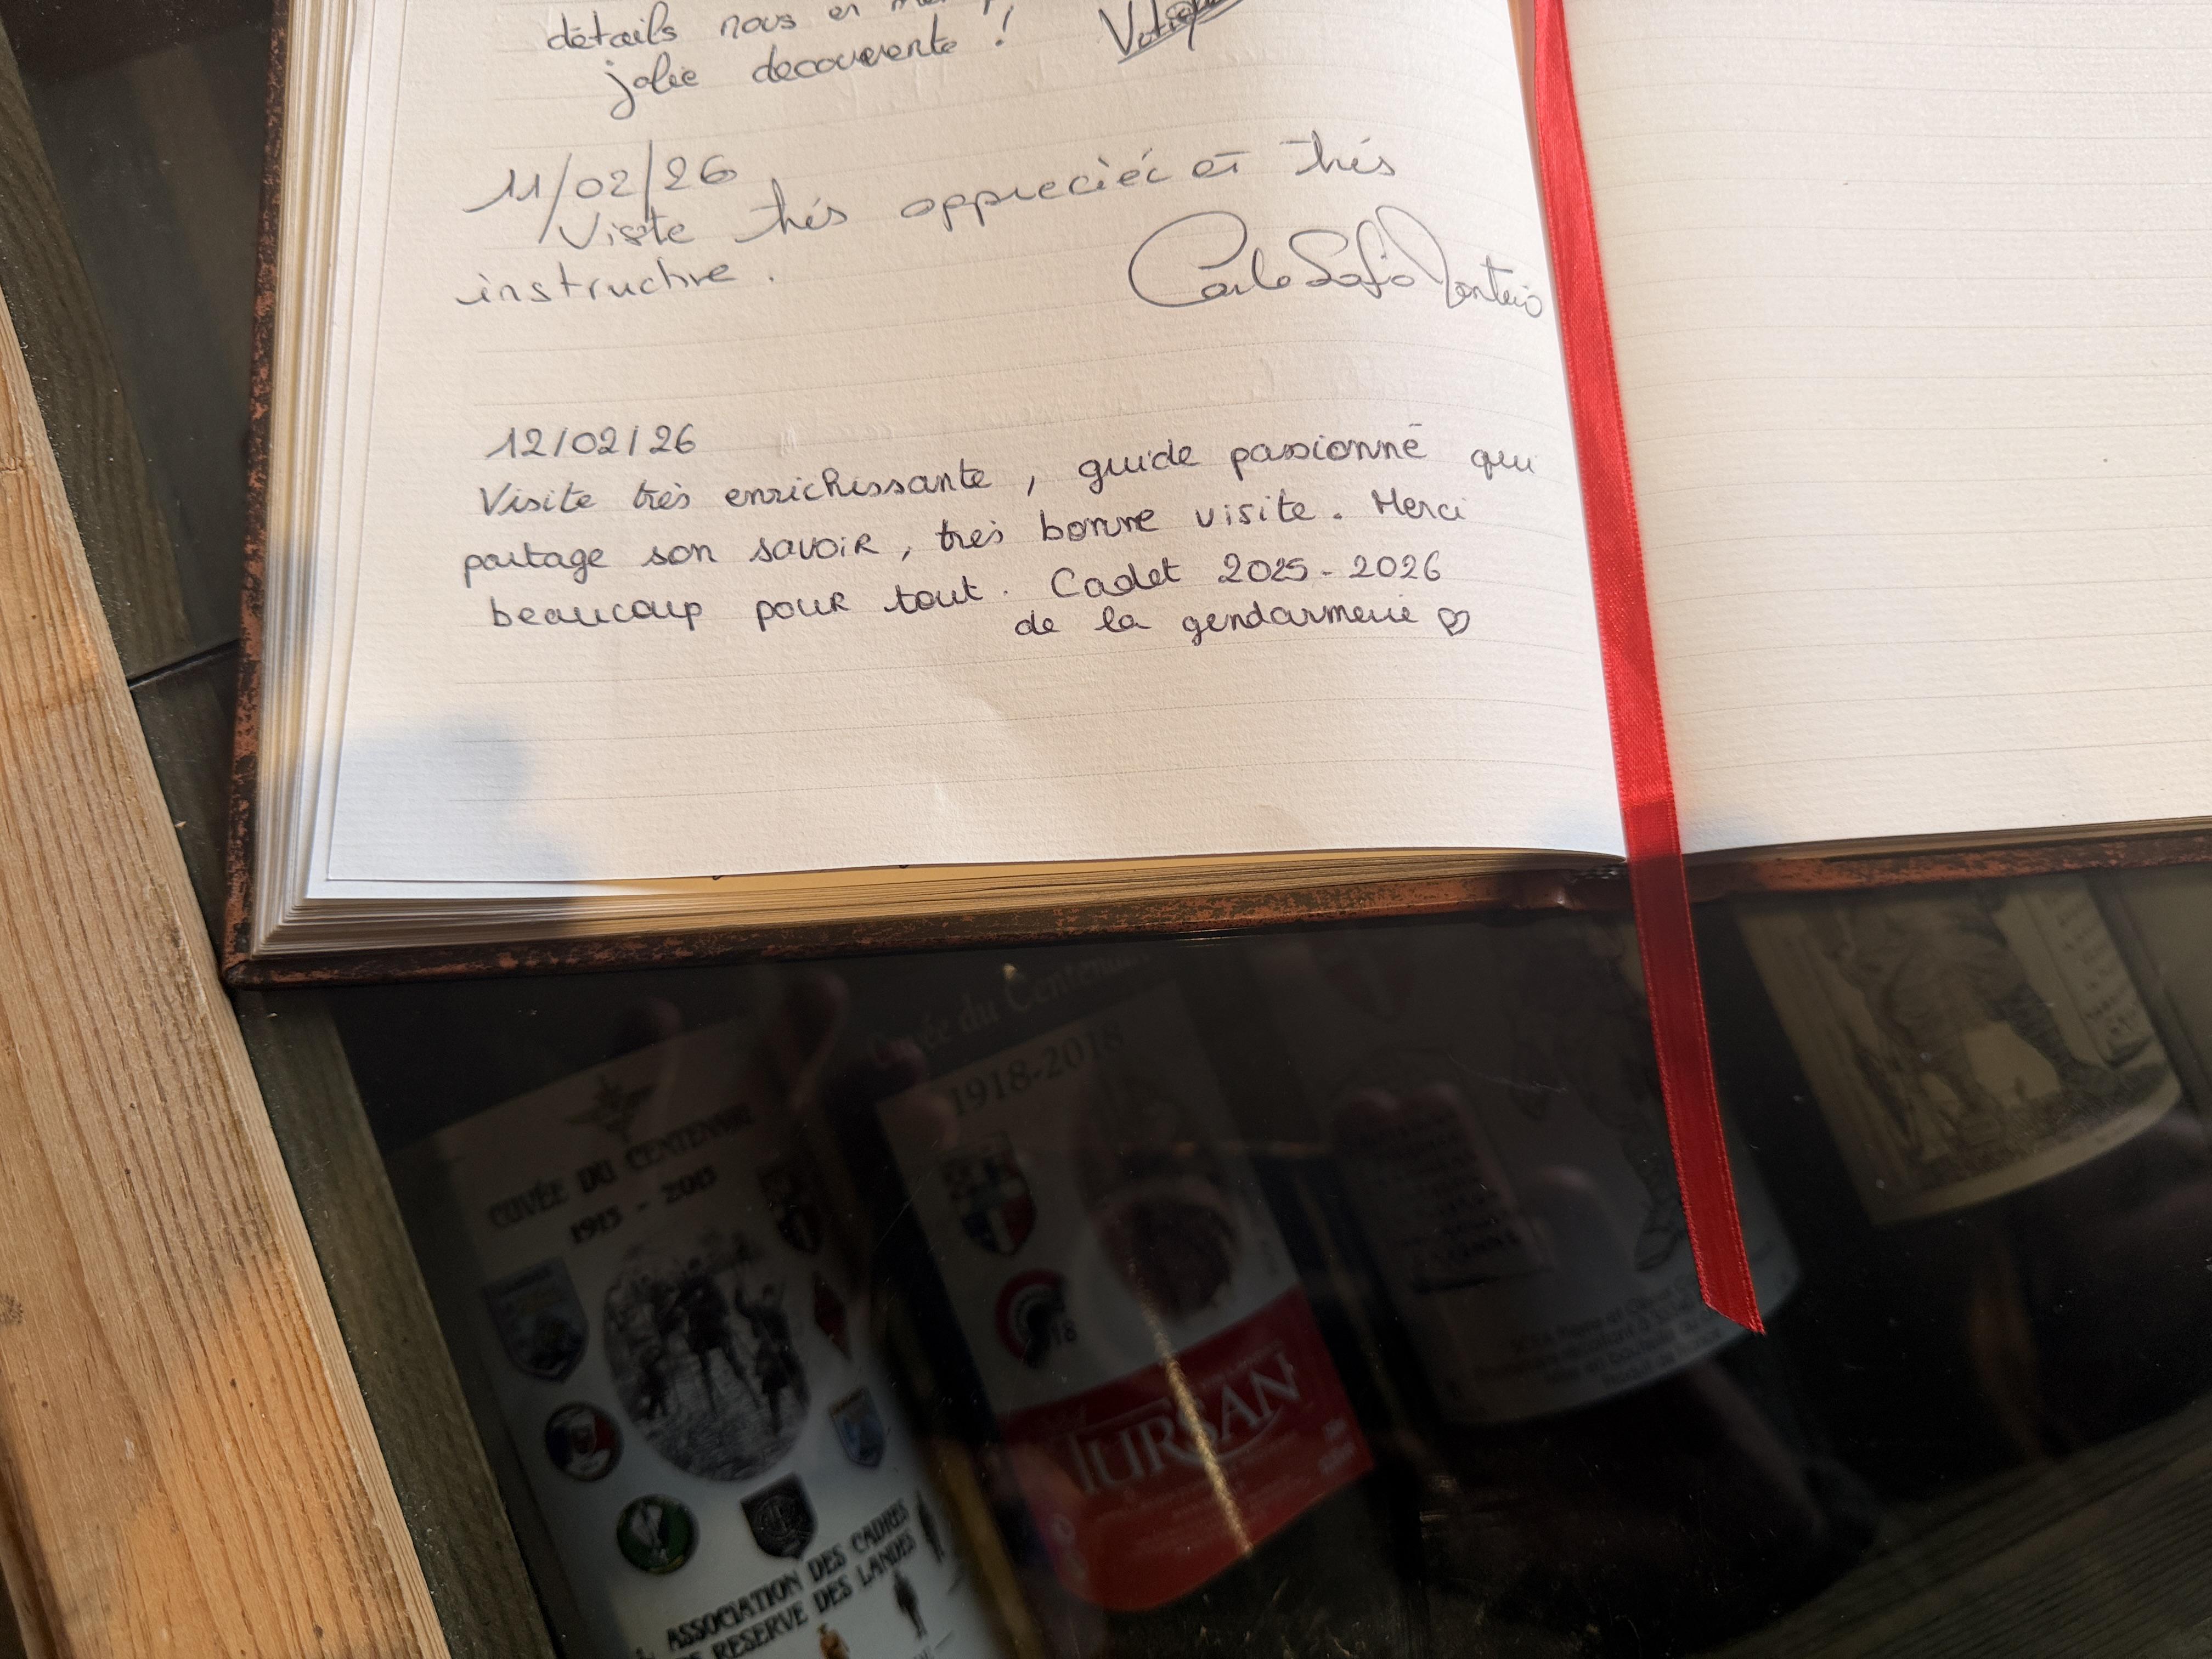 détails nous en
jolie decouverte !
11/02/26
Visite trés appreciéé et trés
instructive.
12/02/26
Visite très enrichissante, guide passionné qui
partage son savoir, très bonne visite. Merci
beaucoup pour tout. Cadet 2025-2026
de la gendarmerie ♡
Cuvée du Centenaire
1918-2018
CUVÉE DU CENTENAIRE
1915 - 2015
TURSAN
ASSOCIATION DES CADRES
RESERVE DES LANDES